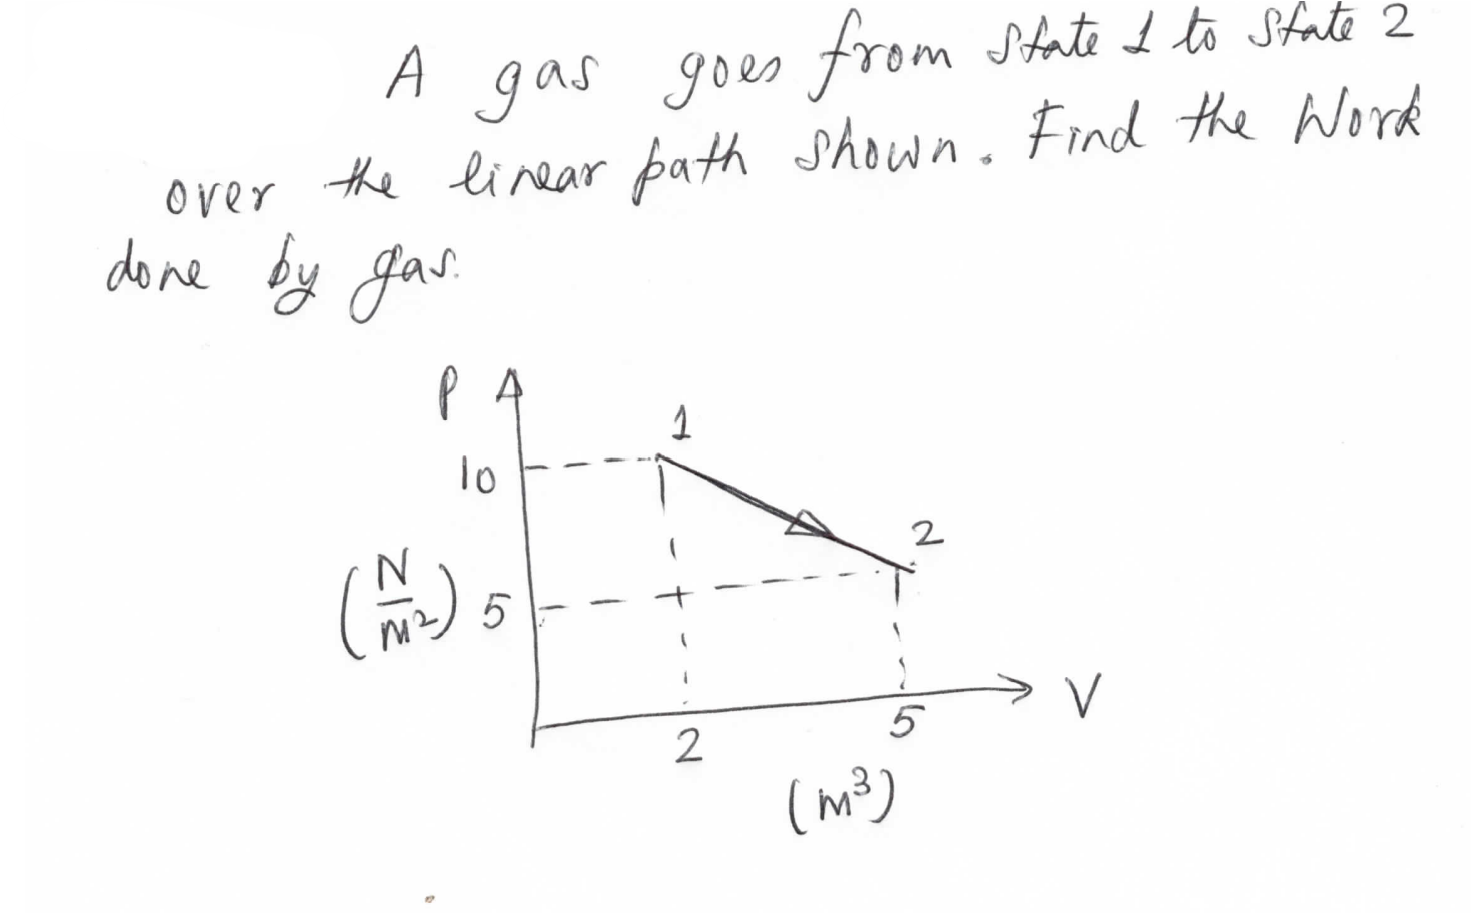 A gas goes from state 1 to state 2
over the linear path shown. Find the Work
done by gas.
P
1
10
2
(N/m²) 5
V
2 5
(m³)